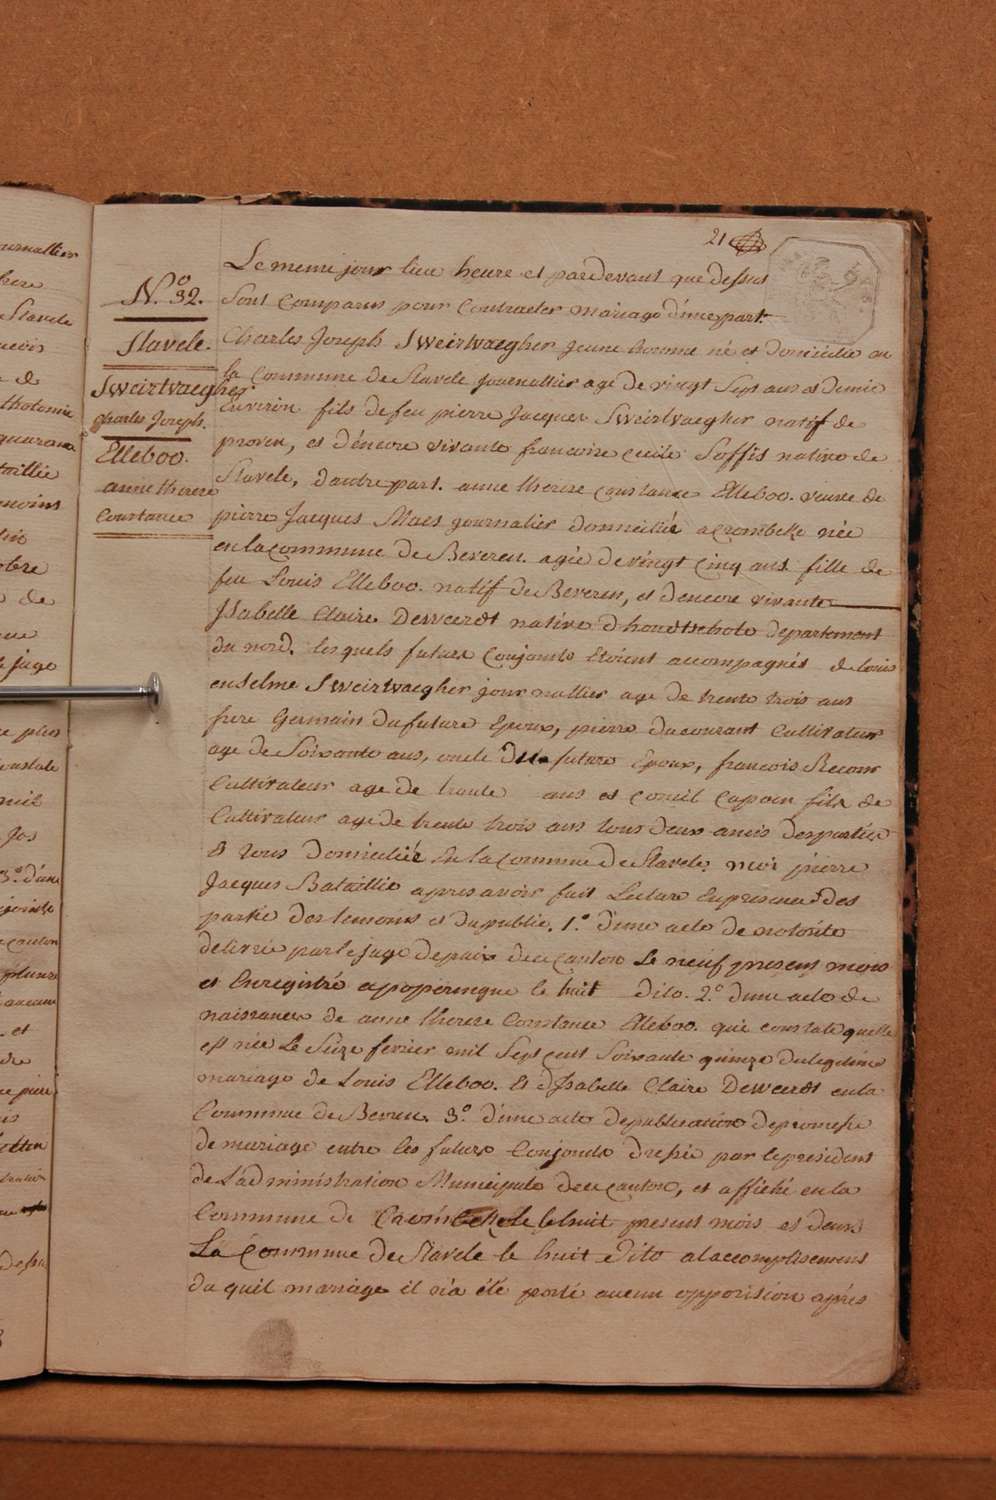 21
N.o 32.
Stavele.
Sweirtvaegher
Charles Joseph.
Elleboo.
anne therese
Constance
Le meme jour lieu heure et pardevant que dessus
sont Comparus pour Contracter mariage d'une part.
Charles Joseph Sweirtvaegher jeune homme né et domicilié en
la Commune de Stavele journallier agé de vingt Sept ans et demie
Environ fils de feu pierre Jacques Sweirtvaegher natif de
proven, et d'encore vivante francoise Cecile Soffis native de
Stavele, d'autre part. anne therese Constance Elleboo. veuve de
pierre Jacques Maes journalier domiciliée a Crombeke née
en la commune de Beveren. agée de vingt Cinq ans fille de
feu Louis Elleboo. natif de Beveren, et d'encore vivante
Isabelle Claire Deweerdt native d'hondtschote departement
du nord. lesquels futurs Conjoints etoient accompagnés de louis
enselme Sweirtvaegher journallier age de trente trois ans
frere Germain du future Epoux, pierre ducourant Cultivateur
age de Soixante ans, oncle du future Epoux, francois
Cultivateur age de trente ans et fils de
Cultivateur age de trente trois ans tous deux amis des parties
Et tous domiciliés En la Commune de Stavele. moi pierre
Jacques Bataillie apres avoir fait Lecture En presence des
partie des temoins et du public. 1.o d'une acte de notorité
delivrée par le juge de paix de ce canton le neuf present mois
et Enregistré a poperingue le huit dito. 2.o d'une acte de
naissance de anne therese Constance Elleboo. qui constate quelle
est née Le Seize fevrier mil Sept cent Soixante quinze du legitime
mariage de Louis Elleboo. Et d'Isabelle Claire Deweerdt en la
Commune de Beveren. 3.o d'une acte de publication de promesse
de mariage entre les futurs Conjoints dressée par le president
de Ladministration Municipale de ce canton, et affiché en la
Commune de Crombeke le huit present mois et dans
La Commune de Stavele le huit dito a laccomplissement
du quil mariage il n'a été porté aucun opposition aprés